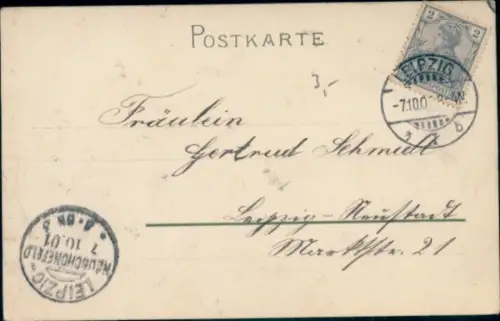 POSTKARTE
2 2
LEIPZIG
-7.10.0
b
3,-
Fräulein
Gertrud Schmidt
Leipzig-Neustadt
Marktstr. 21
7 10.01
LEIPZIG-
NEUSCHÖNEFELD